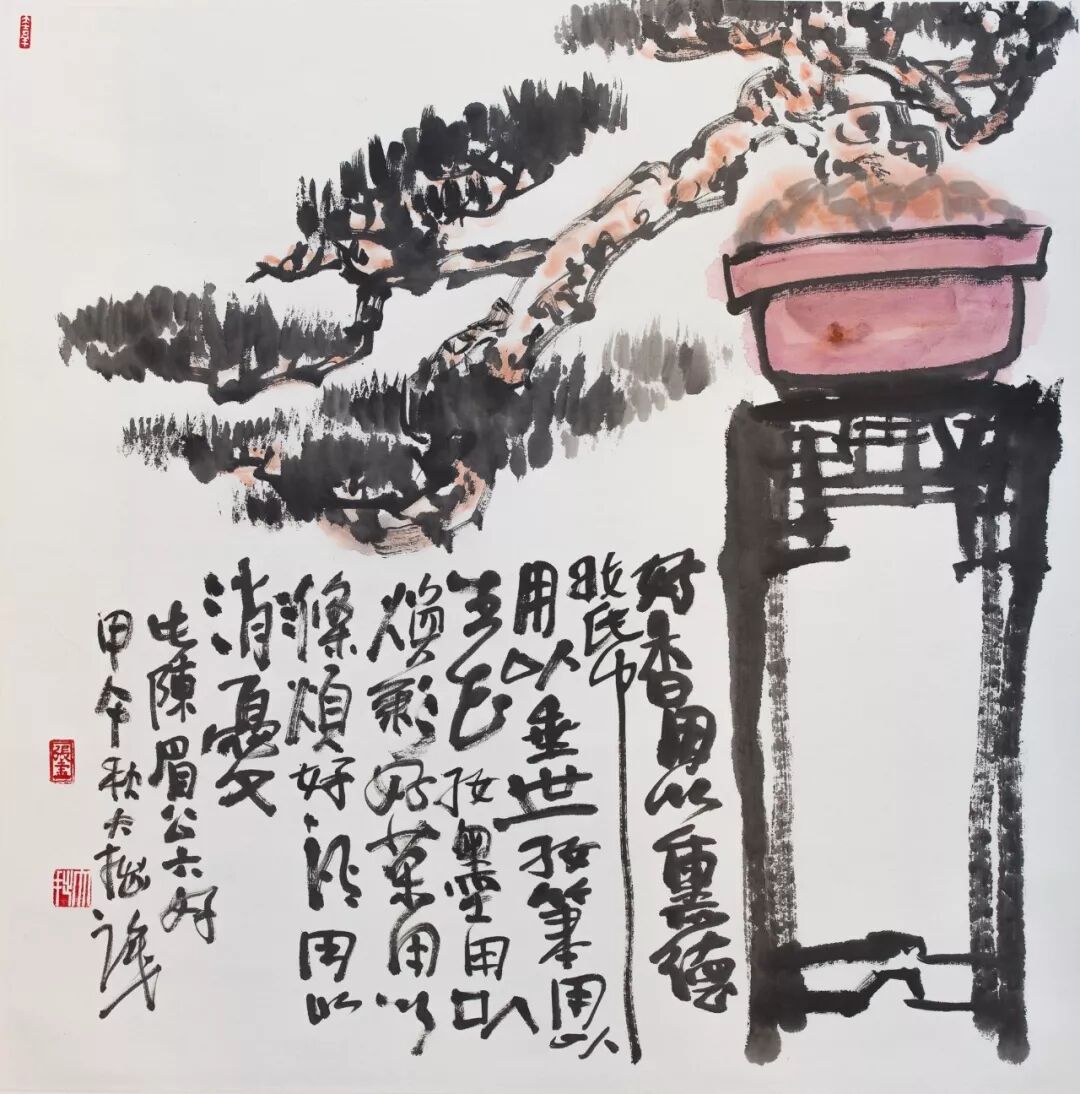 好香用以熏德
好帋
用以垂世好筆用以
生花好墨用以
焕彩好茶用以
滌煩好酒用以
消憂
此陳眉公六好
甲午秋大